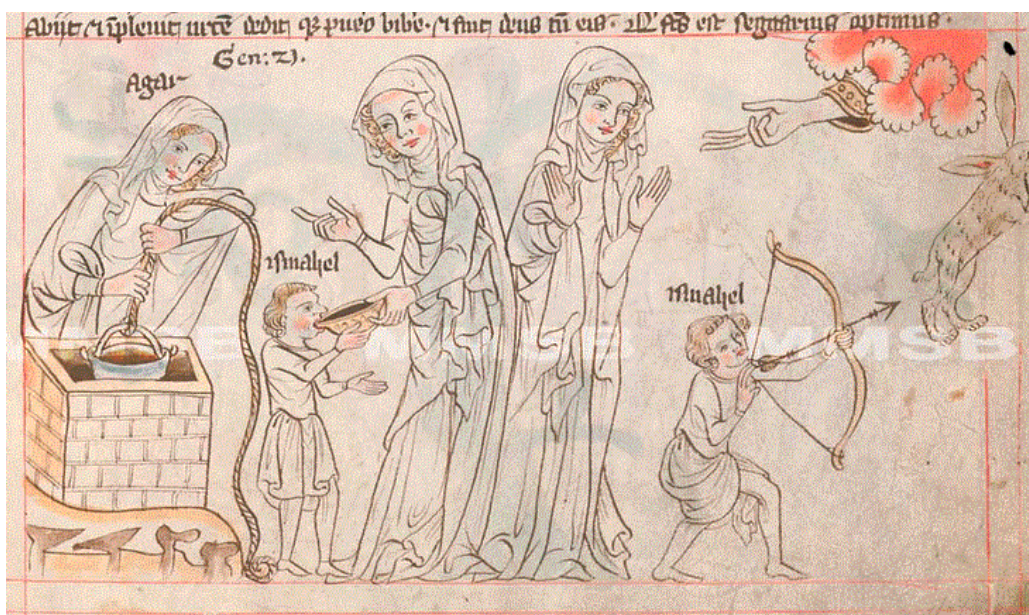 Abijt et ĩpleuit utrẽ dedit q̨ puero bibe. et fuit deus cũ eo. et fcũs est sagittarius optimus.
Gen: 21.
Agar
ismahel
ismahel
MMSB
MMSB